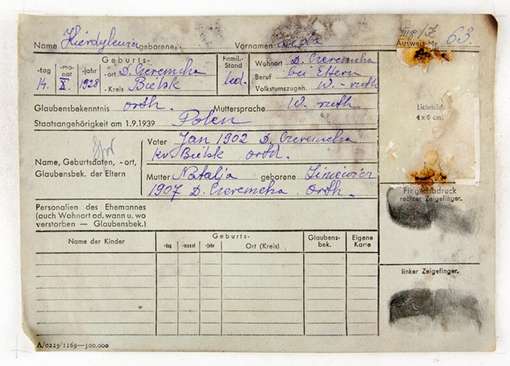 Name geborene: Vornamen
Ausweis-Nr. 63.
Geburts- Famil.- Stand Wohnort D. Czeremcha
-tag -mo- nat -jahr -ort D. Czeremcha Beruf bei Eltern
14. X. 1928 -Kreis Bielsk led. Volkstumszugeh. W.-ruth
Glaubensbekenntnis orth. Muttersprache W. ruth
Staatsangehörigkeit am 1.9.1939 Polen
Lichtbild
4 x 6 cm
Name, Geburtsdaten, -ort,
Glaubensbek. der Eltern
Vater Jan 1902 D. Czeremcha
Kr. Bielsk orth.
Mutter Natalja geborene
1907 D. Czeremcha Orth.
Fingerabdruck
rechter Zeigefinger.
Personalien des Ehemannes
(auch Wohnort od. wann u. wo
verstorben — Glaubensbek.)
Name der Kinder Geburts- Glaubens- bek. Eigene Karte
-tag -monat -jahr Ort (Kreis)
linker Zeigefinger.
A/0229/1169—100.000